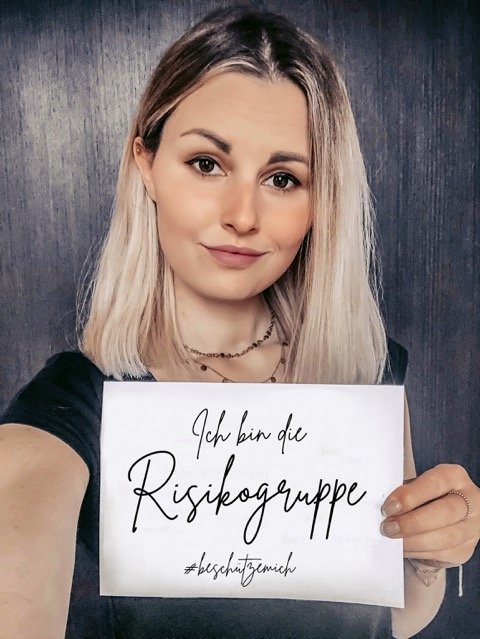 Ich bin die
Risikogruppe
#beschützemich